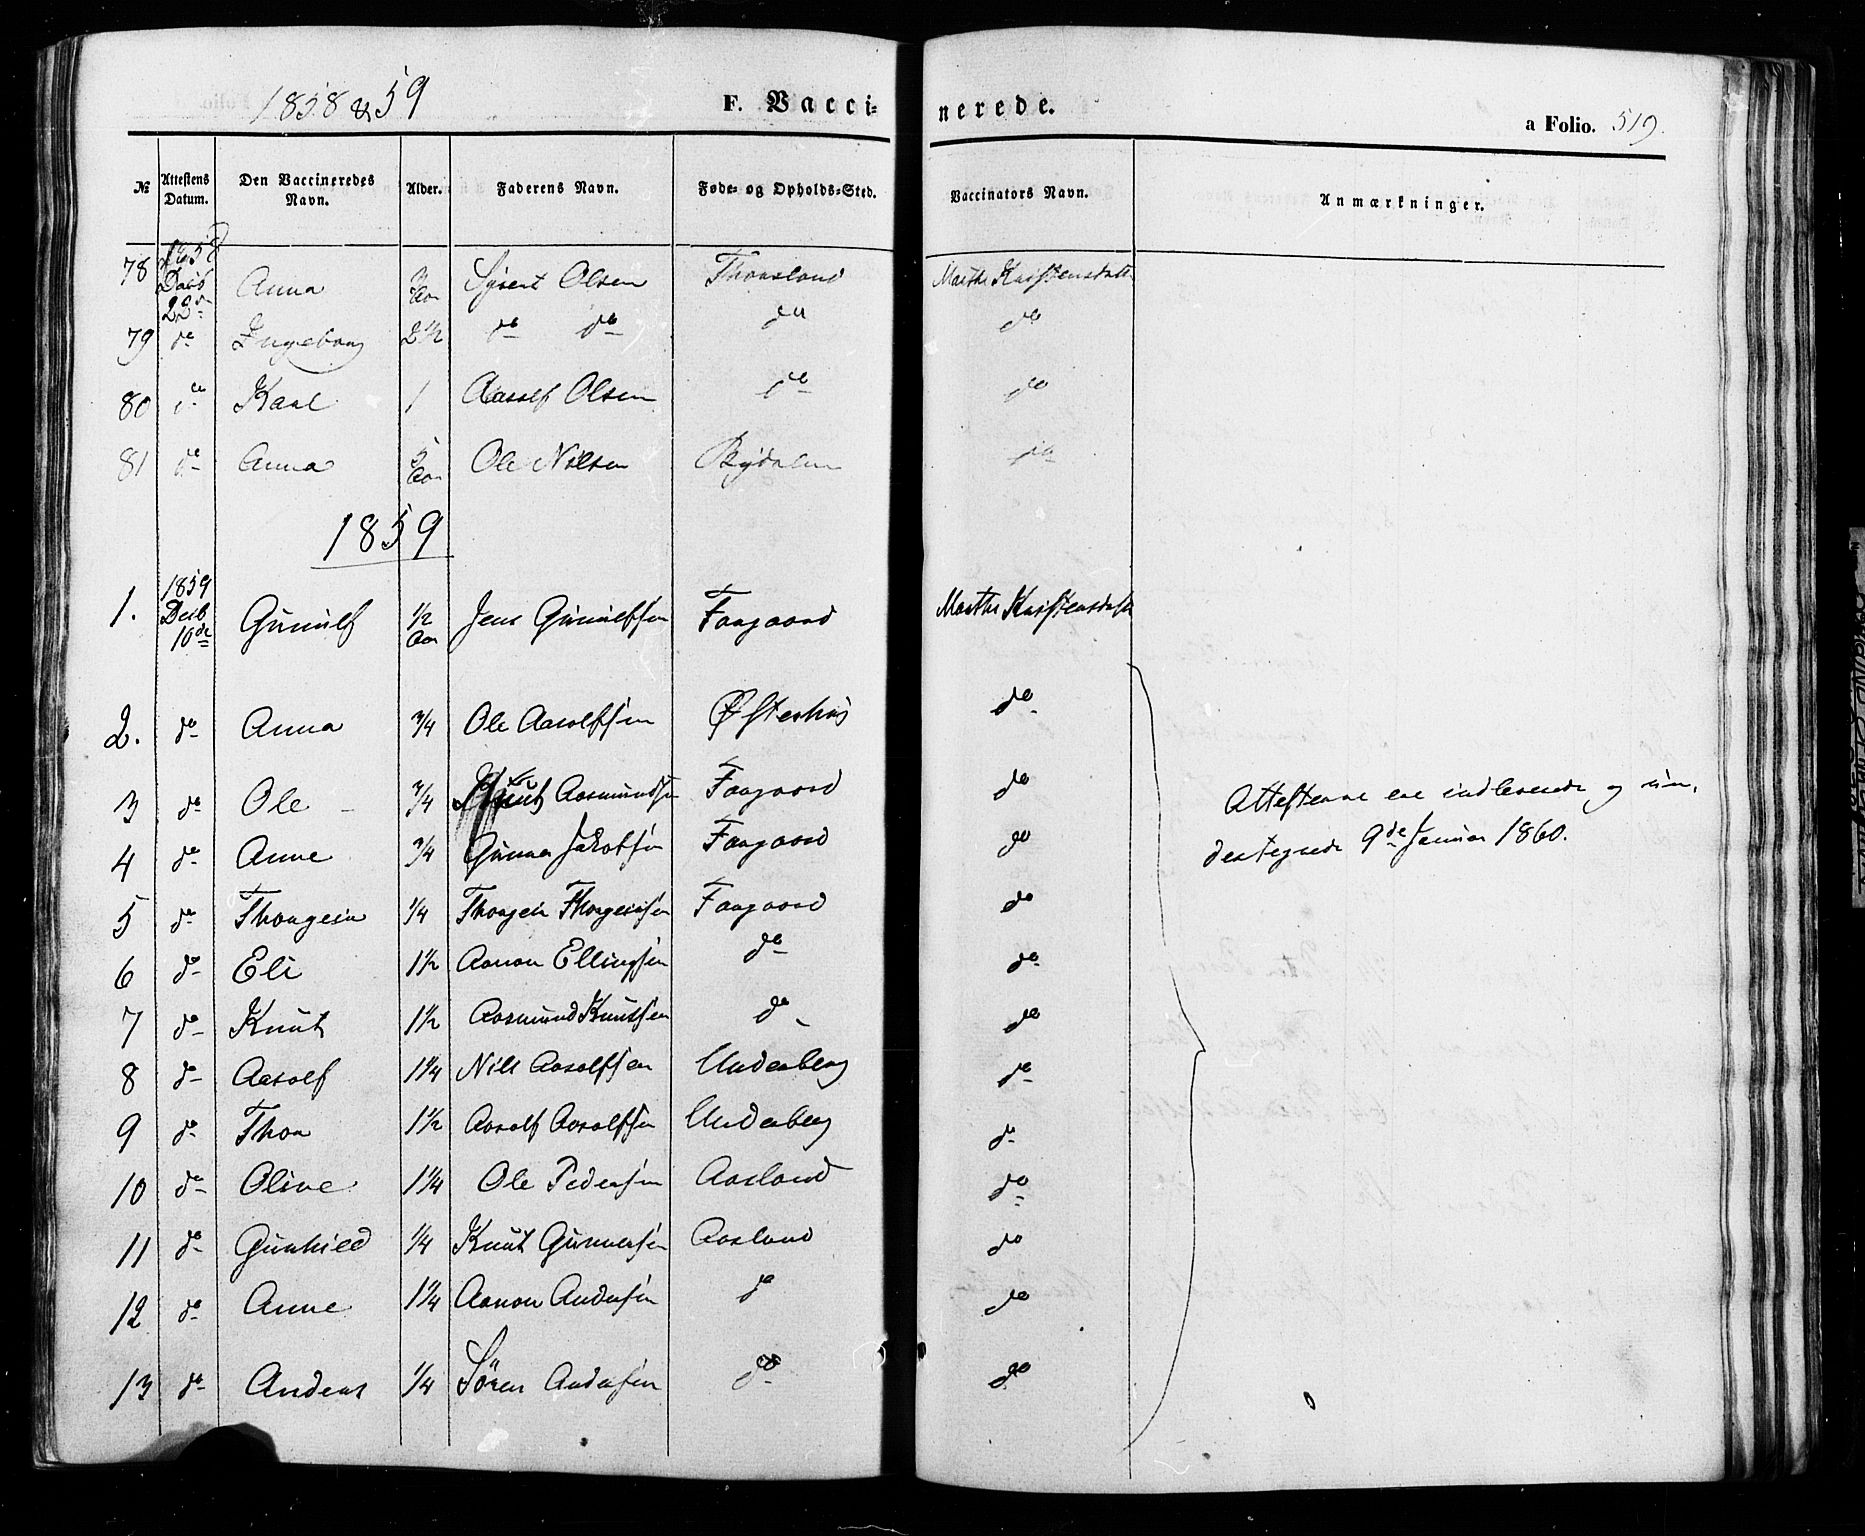 1858 & 59 F. Vaccinerede. a Folio. 519.
№ Attestens Datum. Den Vaccineredes Navn. Alder. Faderens Navn. Føde- og Opholds-Sted. Vaccinators Navn. Anmærkninger.
78 1858 22de Anna Aar Syvert Olsen Thorsland Marthe Karstensdatter
79 do Ingeborg 2 1/2 do do do do
80 do Karl 1 Aasolf Olsen do do
81 do Anna 5 Aar Ole Nilsen Rydalen do
1859
1. 1859 Decb 10de Gunulf 1/2 Aar Jens Gunulfsen Faagaard Marthe Karstensdatter
2. do Anna 3/4 Ole Aasolfsen Østerhus do
3 do Ole 3/4 Knut Aasmundsen Faagaard do
4 do Anne 3/4 Gunner Jakobsen Faagaard do
5 do Thorgein 1/4 Thorgein Thorgeinsen Faagaard do
6 do Eli 1 1/2 Aanon Ellingsen do do
7 do Knut 1 1/2 Aasmund Knutsen do do
8 do Aasolf 1 1/4 Nils Aasolfsen Underberg do
9 do Thor 1 1/2 Aasolf Aasolfsen Underberg do
10 do Olive 1 1/4 Ole Pedersen Aasland do
11 do Gunhild 1/4 Knut Gunnersen Aasland do
12 do Anne 1 1/4 Aanon Andersen do do
13 do Anders 1/4 Sören Andersen do do
Attesterne ere indleverede og un-
dertegnede 9de Januar 1860.